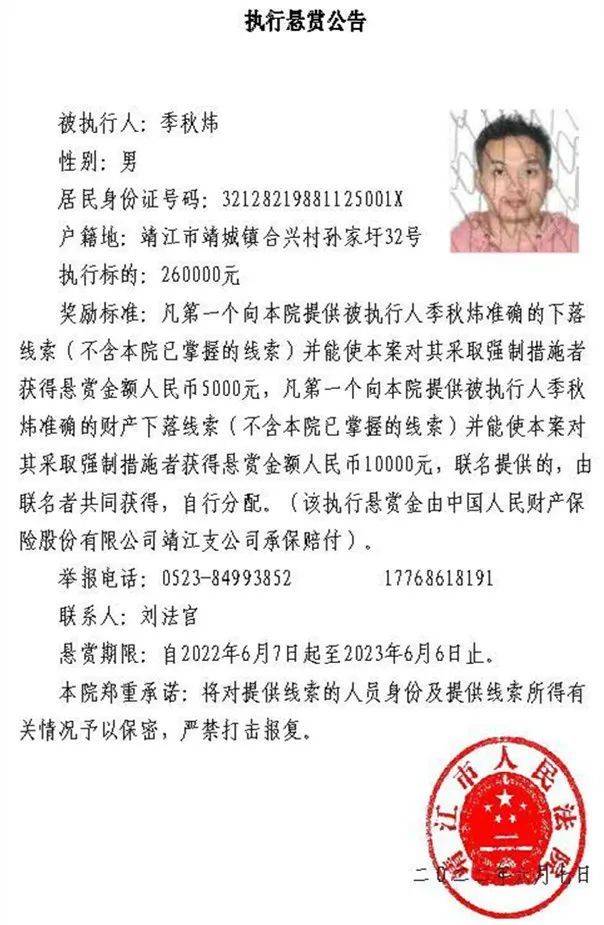 执行悬赏公告
被执行人：季秋炜
性别：男
居民身份证号码：32128219881125001X
户籍地：靖江市靖城镇合兴村孙家圩32号
执行标的：260000元
奖励标准：凡第一个向本院提供被执行人季秋炜准确的下落
线索（不含本院已掌握的线索）并能使本案对其采取强制措施者
获得悬赏金额人民币5000元，凡第一个向本院提供被执行人季秋
炜准确的财产下落线索（不含本院已掌握的线索）并能使本案对
其采取强制措施者获得悬赏金额人民币10000元，联名提供的，由
联名者共同获得，自行分配。（该执行悬赏金由中国人民财产保
险股份有限公司靖江支公司承保赔付）。
举报电话：0523-84993852 17768618191
联系人：刘法官
悬赏期限：自2022年6月7日起至2023年6月6日止。
本院郑重承诺：将对提供线索的人员身份及提供线索所得有
关情况予以保密，严禁打击报复。
靖江市人民法院
二〇二二年六月七日